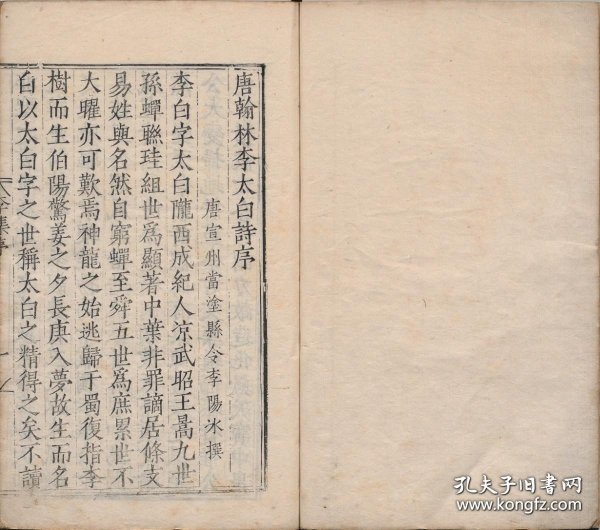 唐翰林李太白詩序
唐宣州當塗縣令李陽冰撰
李白字太白隴西成紀人凉武昭王暠九世
孫蟬聯珪組世爲顯著中葉非罪謫居條支
易姓與名然自窮蟬至舜五世爲庶累世不
大曜亦可歎焉神龍之始逃歸于蜀復指李
樹而生伯陽驚姜之夕長庚入夢故生而名
白以太白字之世稱太白之精得之矣不讀
孔夫子旧书网
kongfz.com